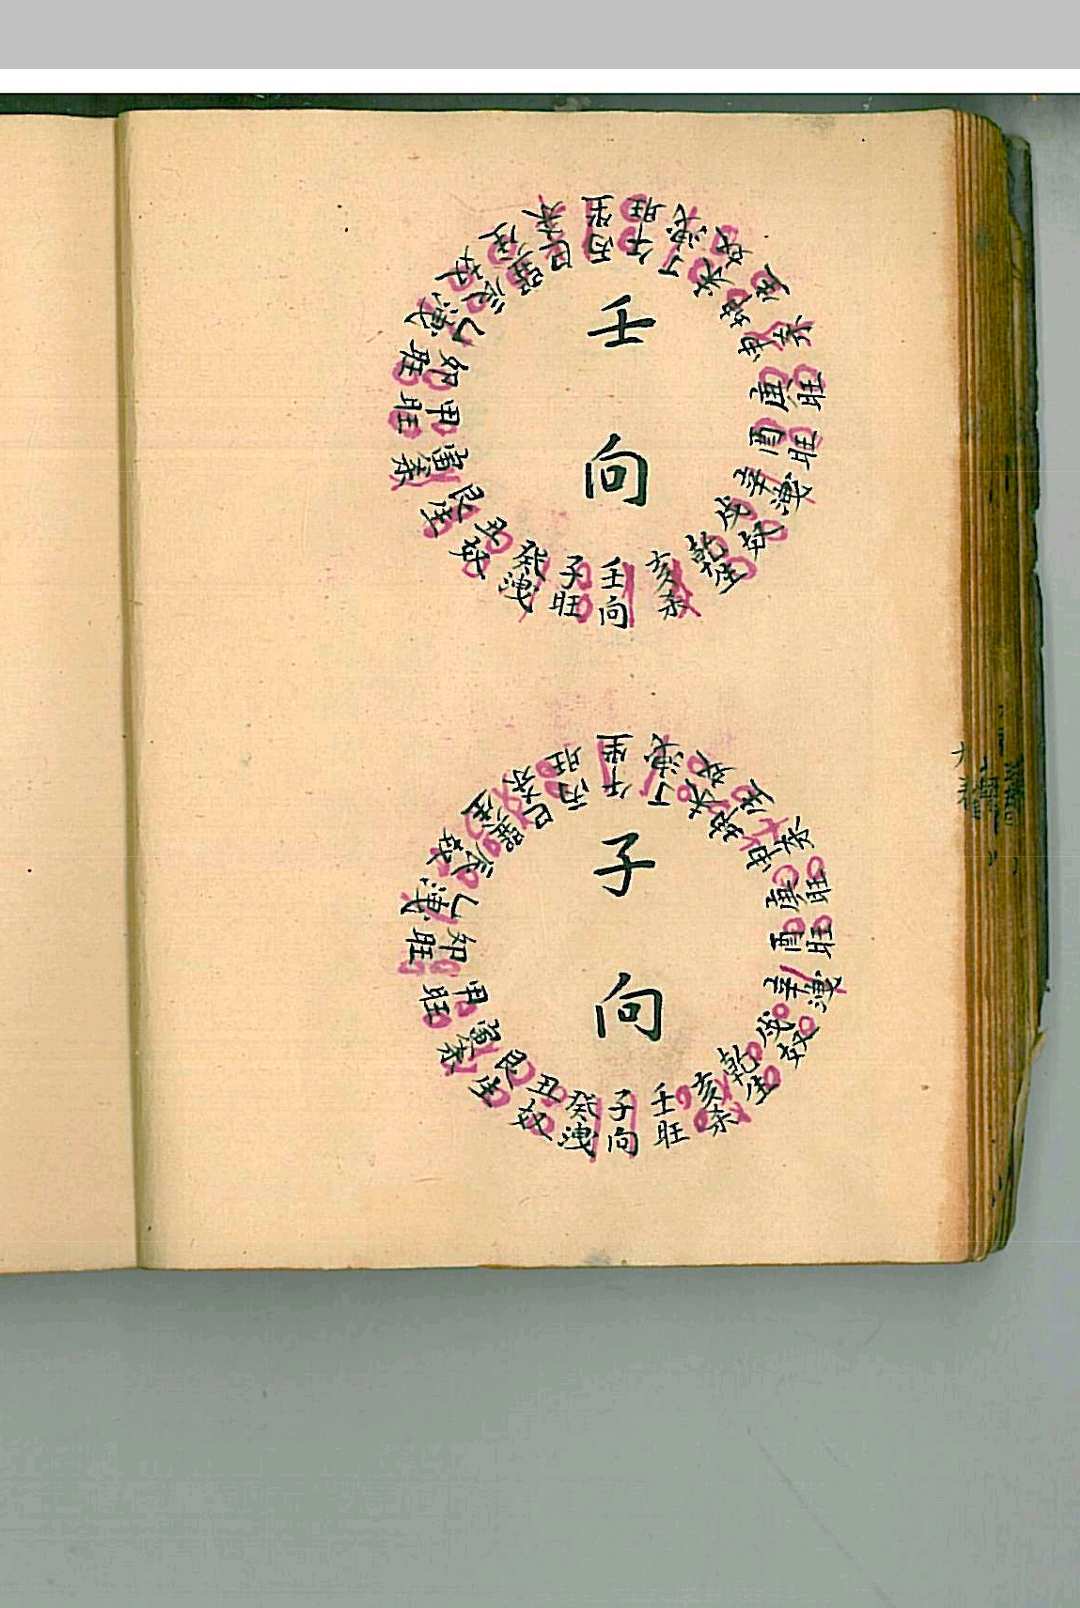 壬向
丙坐
午旺
丁洩
未奴
坤生
申杀
庚旺
酉旺
辛洩
戌奴
乾生
亥杀
壬向
子旺
癸洩
丑奴
艮生
寅杀
甲旺
卯旺
乙洩
辰奴
巽生
巳杀
子向
午坐
丁洩
未奴
坤生
申杀
庚旺
酉旺
辛洩
戌奴
乾生
亥杀
壬旺
子向
癸洩
丑奴
艮生
寅杀
甲旺
卯旺
乙洩
辰奴
巽生
巳杀
丙旺